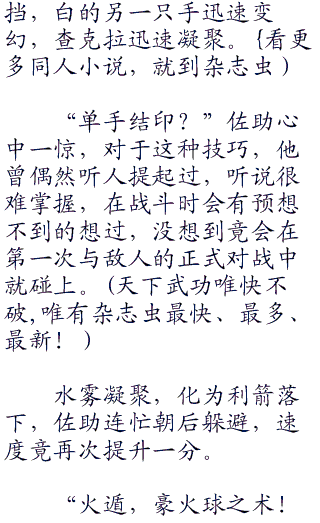 挡，白的另一只手迅速变
幻，查克拉迅速凝聚。{看更
多同人小说，就到杂志虫 )
“单手结印？”佐助心
中一惊，对于这种技巧，他
曾偶然听人提起过，听说很
难掌握，在战斗时会有预想
不到的想过，没想到竟会在
第一次与敌人的正式对战中
就碰上。(天下武功唯快不
破,唯有杂志虫最快、最多、
最新！ )
水雾凝聚，化为利箭落
下，佐助连忙朝后躲避，速
度竟再次提升一分。
“火遁，豪火球之术！